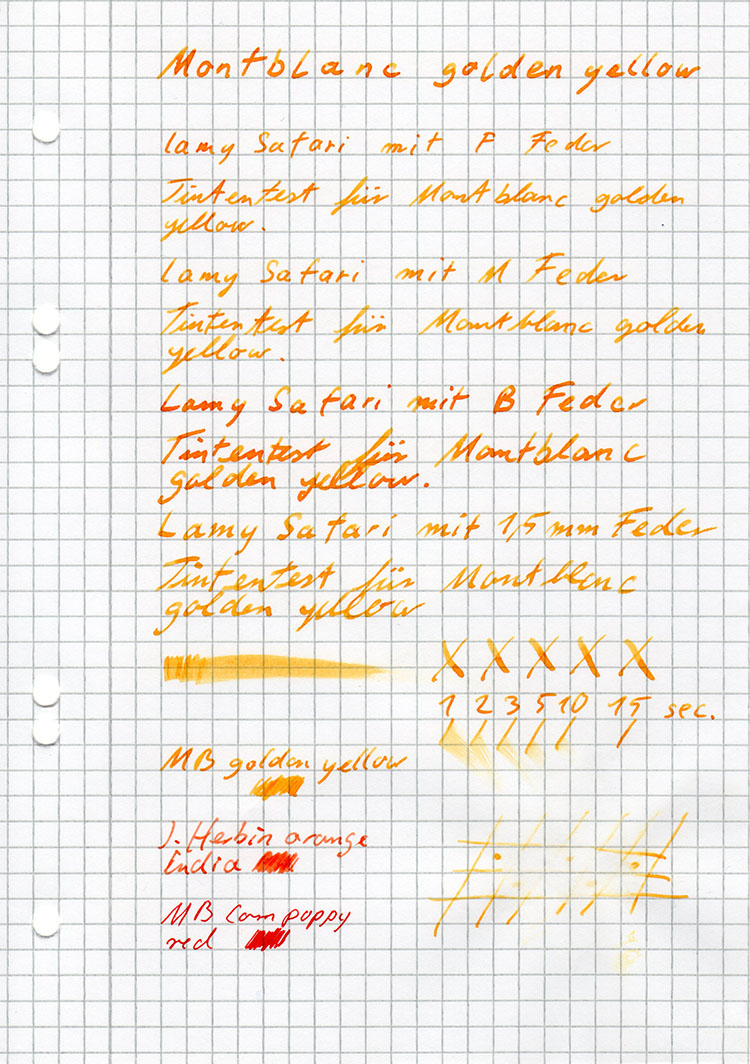 Montblanc golden yellow
Lamy Safari mit F Feder
Tintentest für Montblanc golden
yellow.
Lamy Safari mit M Feder
Tintentest für Montblanc golden
yellow.
Lamy Safari mit B Feder
Tintentest für Montblanc
golden yellow.
Lamy Safari mit 1,5 mm Feder
Tintentest für Montblanc
golden yellow
X X X X X
1 2 3 5 10 15 sec.
MB golden yellow
J. Herbin orange
India
MB Corn poppy
red